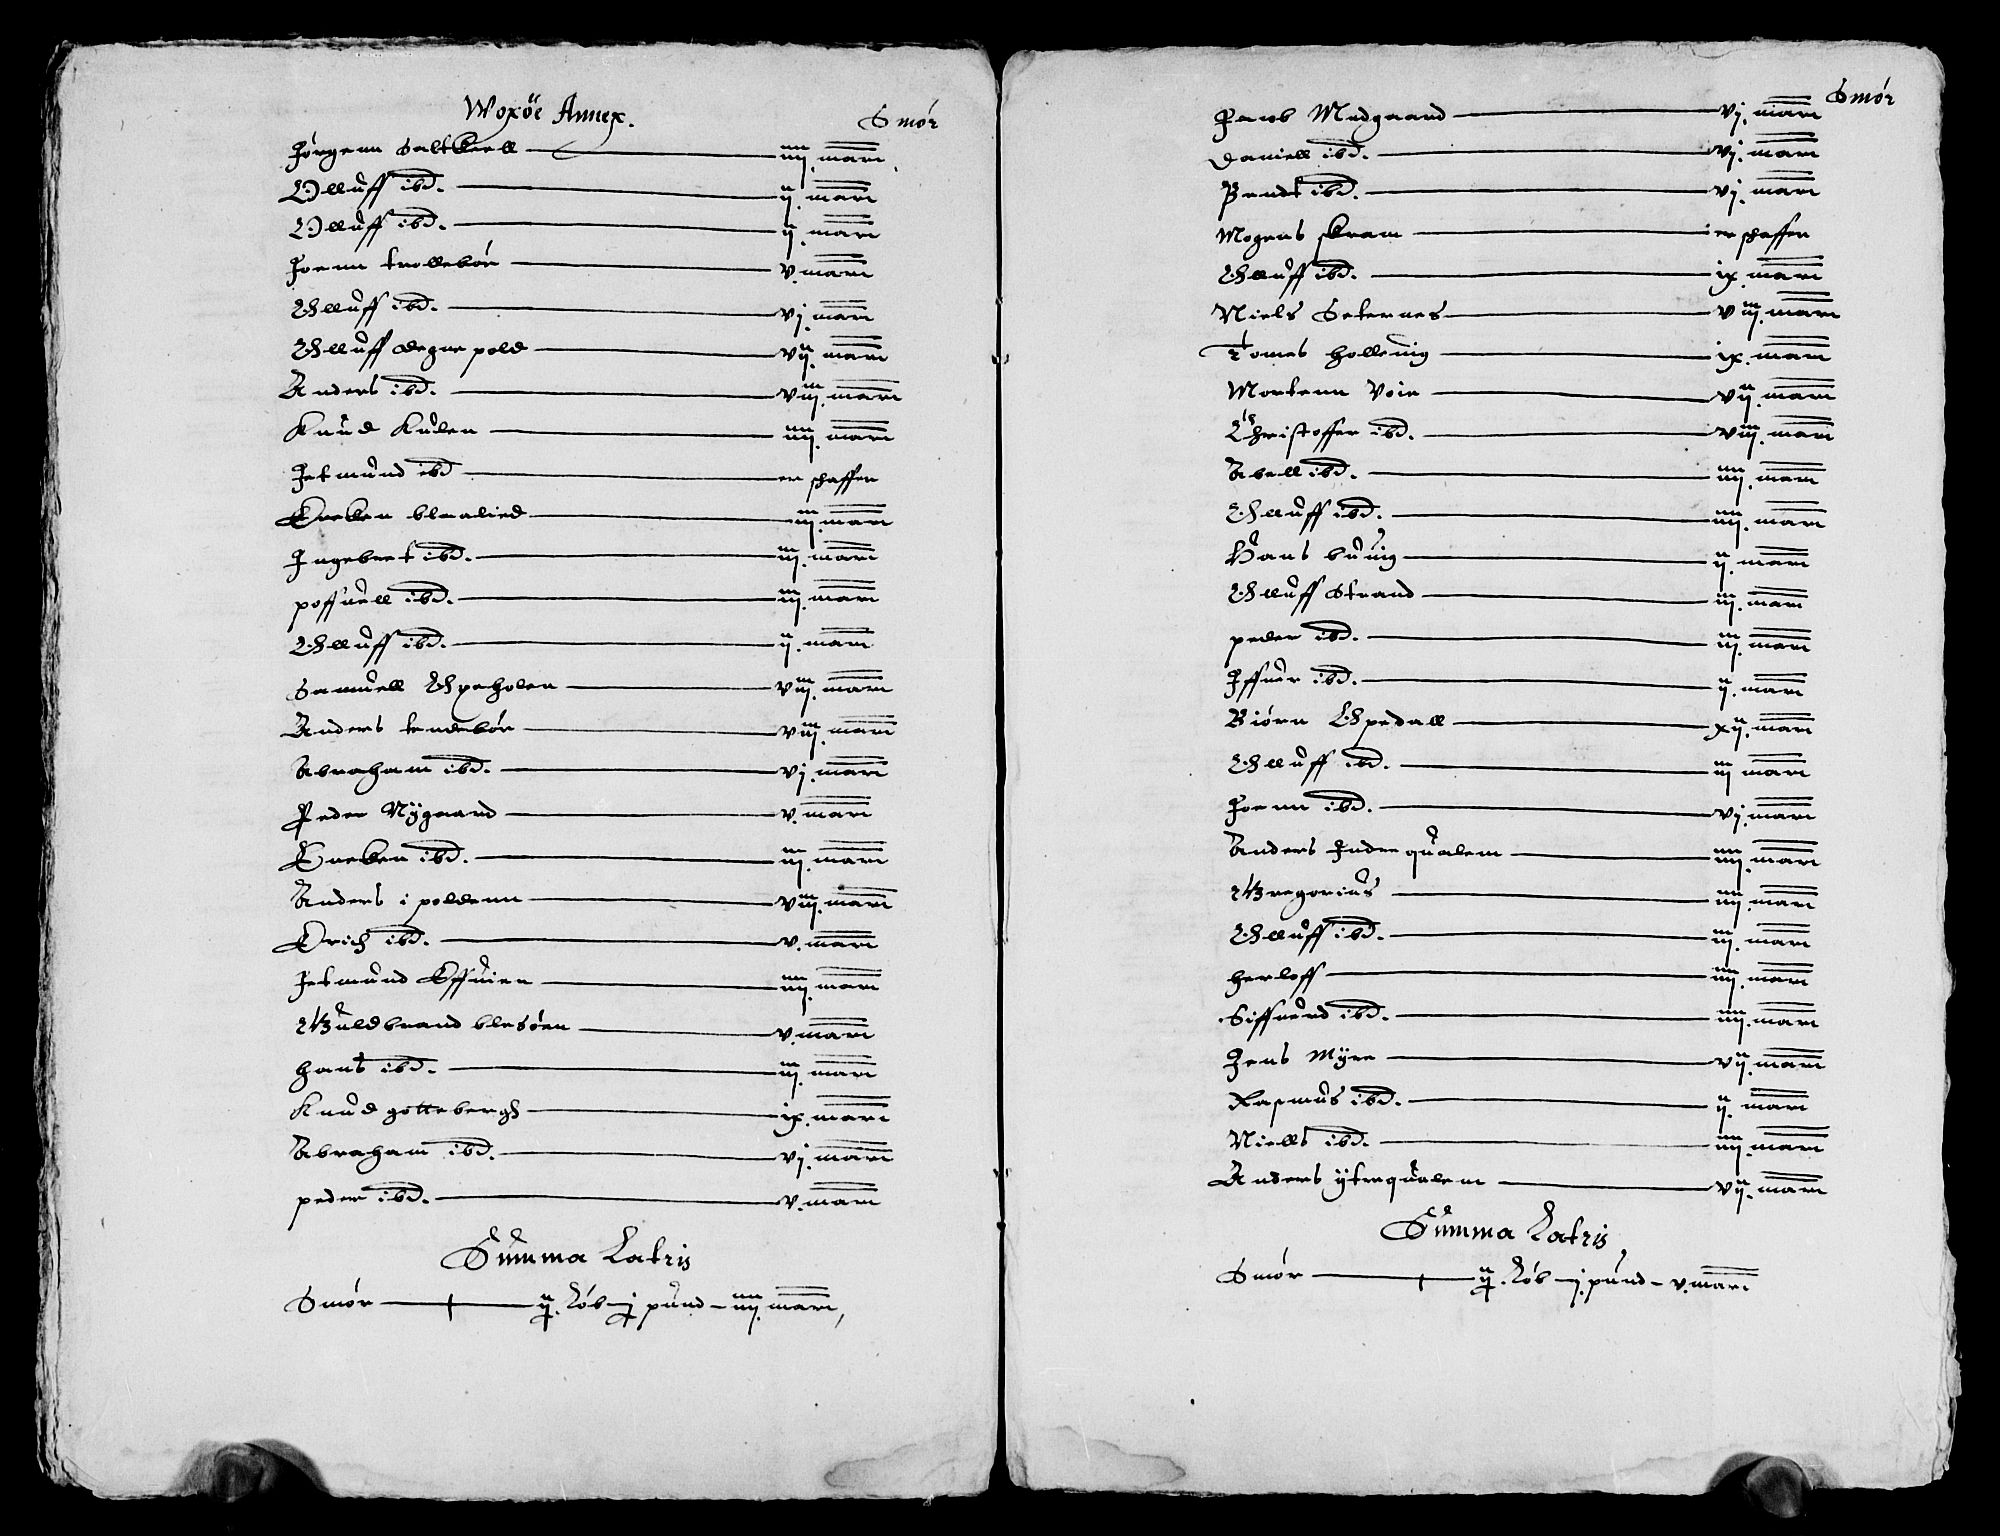 Woxöe Annex.
Smór
Jórgenn Saltkeell — iiij. marc
Olluff ibd. — ij. marc
Olluff ibd. — ij. marc
Joenn trollebór — v. marc
Olluff ibd. — vj. marc
Olluff degnepold — vij. marc
Anders ibd. — viij. marc
Knud Kulen — iiij. marc
Jetmund ibd — er schaffer
Encken blealied — iij. marc
Ingebret ibd. — iij. marc
poffuell ibd. — iij. marc
Olluff ibd. — ij. marc
Samuell Opeholen — viij. marc
Anders tendebór — viij. marc
Abraham ibd. — vj. marc
Peder Nÿgaard — v. marc
Encken ibd. — iij. marc
Anders i poldenn — viij. marc
Erich ibd. — v. marc
Jetmund Effuien — iiij. marc
Guldbrand blesóen — v. marc
hans ibd. — iij. marc
Knud gottebergh — ix. marc
Abraham ibd. — vj. marc
peder ibd. — v. marc
Summa Latris
Smór — ij. Lób — j pund — iiij. marc,
Smór
Jacob Medgaard — vj. marc
Daniell ibd. — vj. marc
Bendt ibd. — vj. marc
Mogens skram — er schaffer
Olluff ibd. — ix. marc
Niels Seternes — viij. marc
Tomes hollevig — ix. marc
Mortenn Voie — vij. marc
Christoffer ibd. — viij. marc
Abell ibd. — iiij. marc
Olluff ibd. — iiij. marc
Hans buuig — ij. marc
Olluff Strand — iij. marc
peder ibd. — iij. marc
Iffuer ibd. — ij. marc
Biórn Opedall — xij. marc
Olluff ibd. — iij marc
Joenn ibd. — vj. marc
Anders Indrequalem — iiij. marc
Gregorius — iiij. marc
Olluff ibd. — iij. marc
herloff — iiij. marc
Siffuerd ibd. — iiij. marc
Jens Mÿre — vij. marc
Rasmus ibd. — ij. marc
Niells ibd. — iiij. marc
Anders ÿtrequalem — vij. marc
Summa Latris
Smór — ij. Lób — j. pund — v. marc